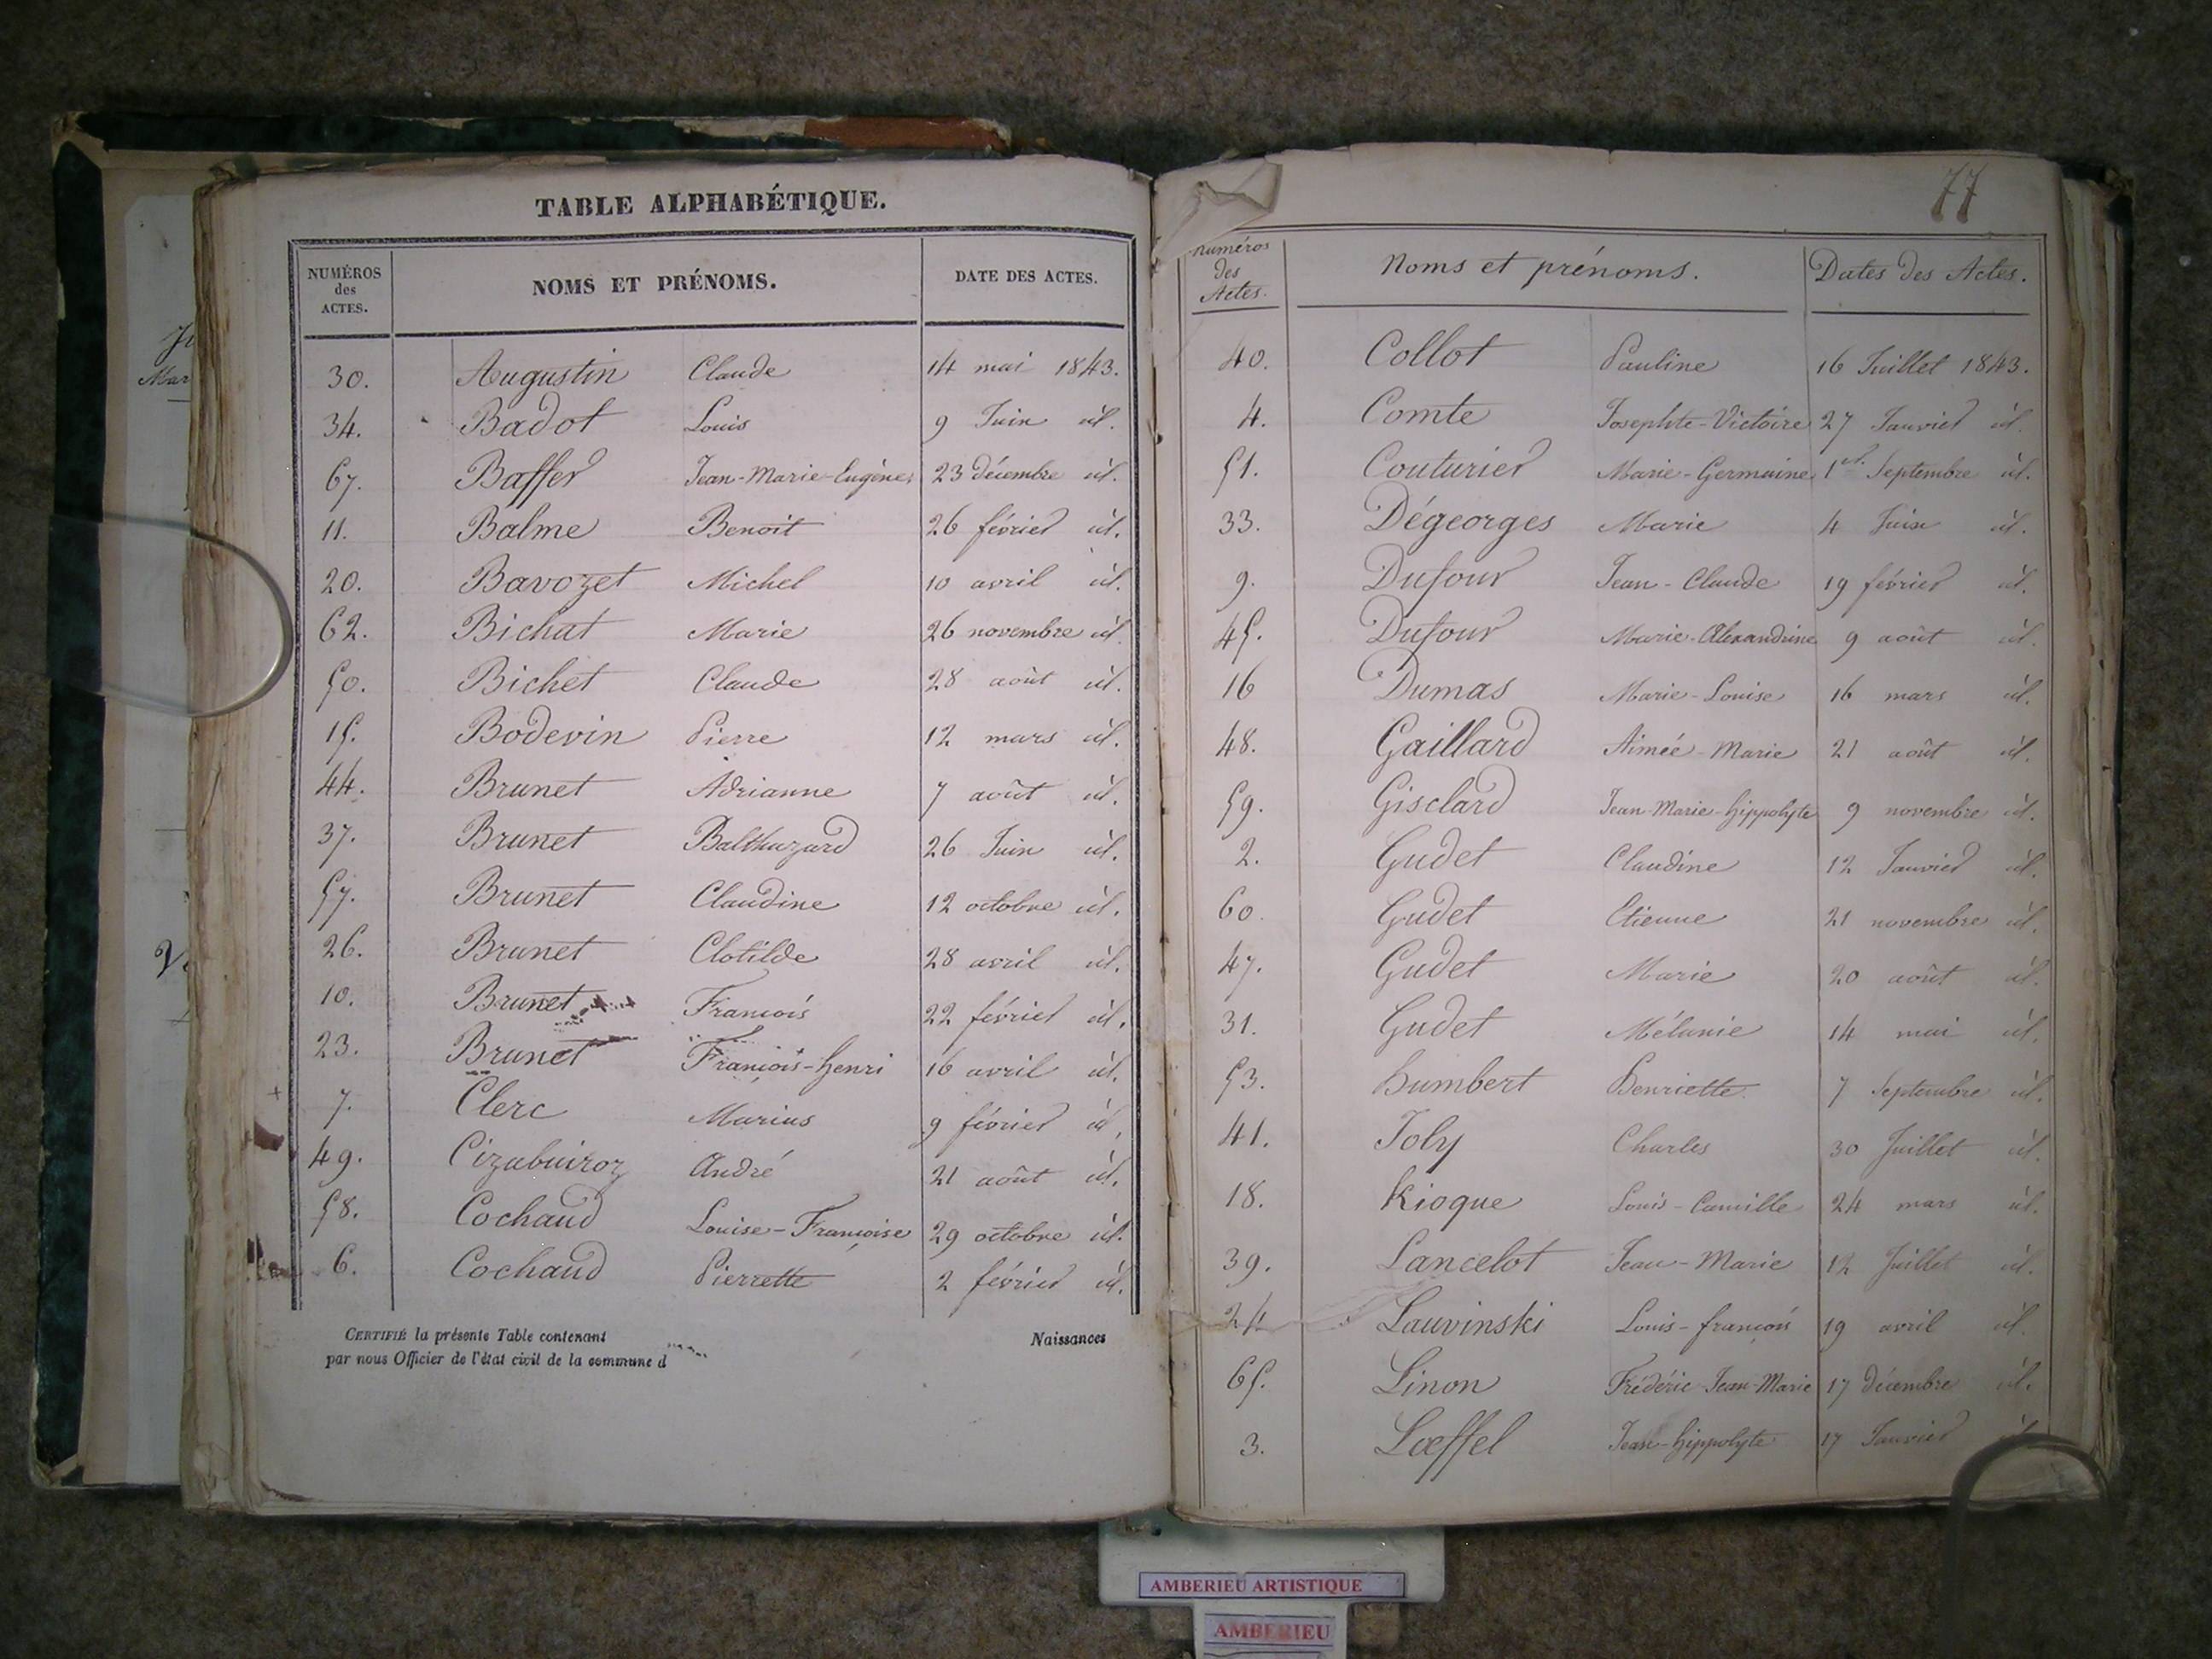 TABLE ALPHABÉTIQUE.
NUMÉROS
des
ACTES.
NOMS ET PRÉNOMS.
DATE DES ACTES.
30. Augustin Claude 14 mai 1843.
34. Badot Louis 9 Juin id.
67. Baffer Jean-Marie-Eugène 23 décembre id.
11. Balme Benoit 26 février id.
20. Bavozet Michel 10 avril id.
62. Bichat Marie 26 novembre id.
50. Bichet Claude 28 août id.
15. Bodevin Pierre 12 mars id.
44. Brunet Adrianne 7 août id.
37. Brunet Balthazard 26 Juin id.
57. Brunet Claudine 12 octobre id.
26. Brunet Clotilde 28 avril id.
10. Brunet François 22 février id.
23. Brunet François-henri 16 avril id.
7. Clerc Marius 9 février id.
49. André 21 août id.
58. Cochaud Louise-Françoise 29 octobre id.
6. Cochaud Pierrette 2 février id.
CERTIFIÉ la présente Table contenant Naissances
par nous Officier de l'état civil de la commune d
77
numéros
des
Actes.
Noms et prénoms.
Dates des Actes.
40. Collot Pauline 16 Juillet 1843.
4. Comte Josephte-Victoire 27 Janvier id.
51. Couturier Marie-Germaine 1er. Septembre id.
33. Dégeorges Marie 4 Juin id.
9. Dufour Jean-Claude 19 février id.
45. Dufour Marie-Alexandrine 9 août id.
16 Dumas Marie-Louise 16 mars id.
48. Gaillard Aimée-Marie 21 août id.
59. Gisclard Jean-Marie-hippolyte 9 novembre id.
2. Gudet Claudine 12 Janvier id.
60. Gudet Etienne 21 novembre id.
47. Gudet Marie 20 août id.
31. Gudet Mélanie 14 mai id.
53. humbert henriette 7 Septembre id.
41. Joly Charles 30 Juillet id.
18. Kioque Louis-Camille 24 mars id.
39. Lancelot Jean-Marie 12 Juillet id.
24 Lauvinski Louis-françois 19 avril id.
65. Linon Frédéric Jean-Marie 17 décembre id.
3. Lœffel Jean-hippolyte 17 Janvier id
AMBERIEU ARTISTIQUE
AMBERIEU